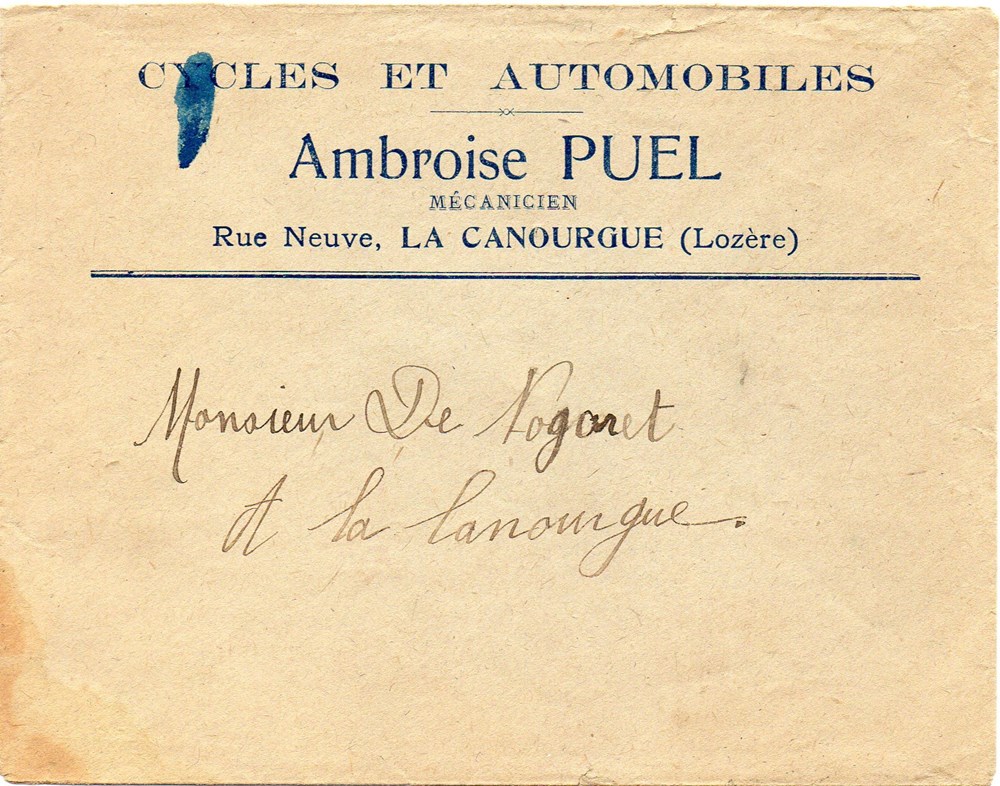 CYCLES ET AUTOMOBILES
Ambroise PUEL
MÉCANICIEN
Rue Neuve, LA CANOURGUE (Lozère)
Monsieur De Nogaret
A la Canourgue.